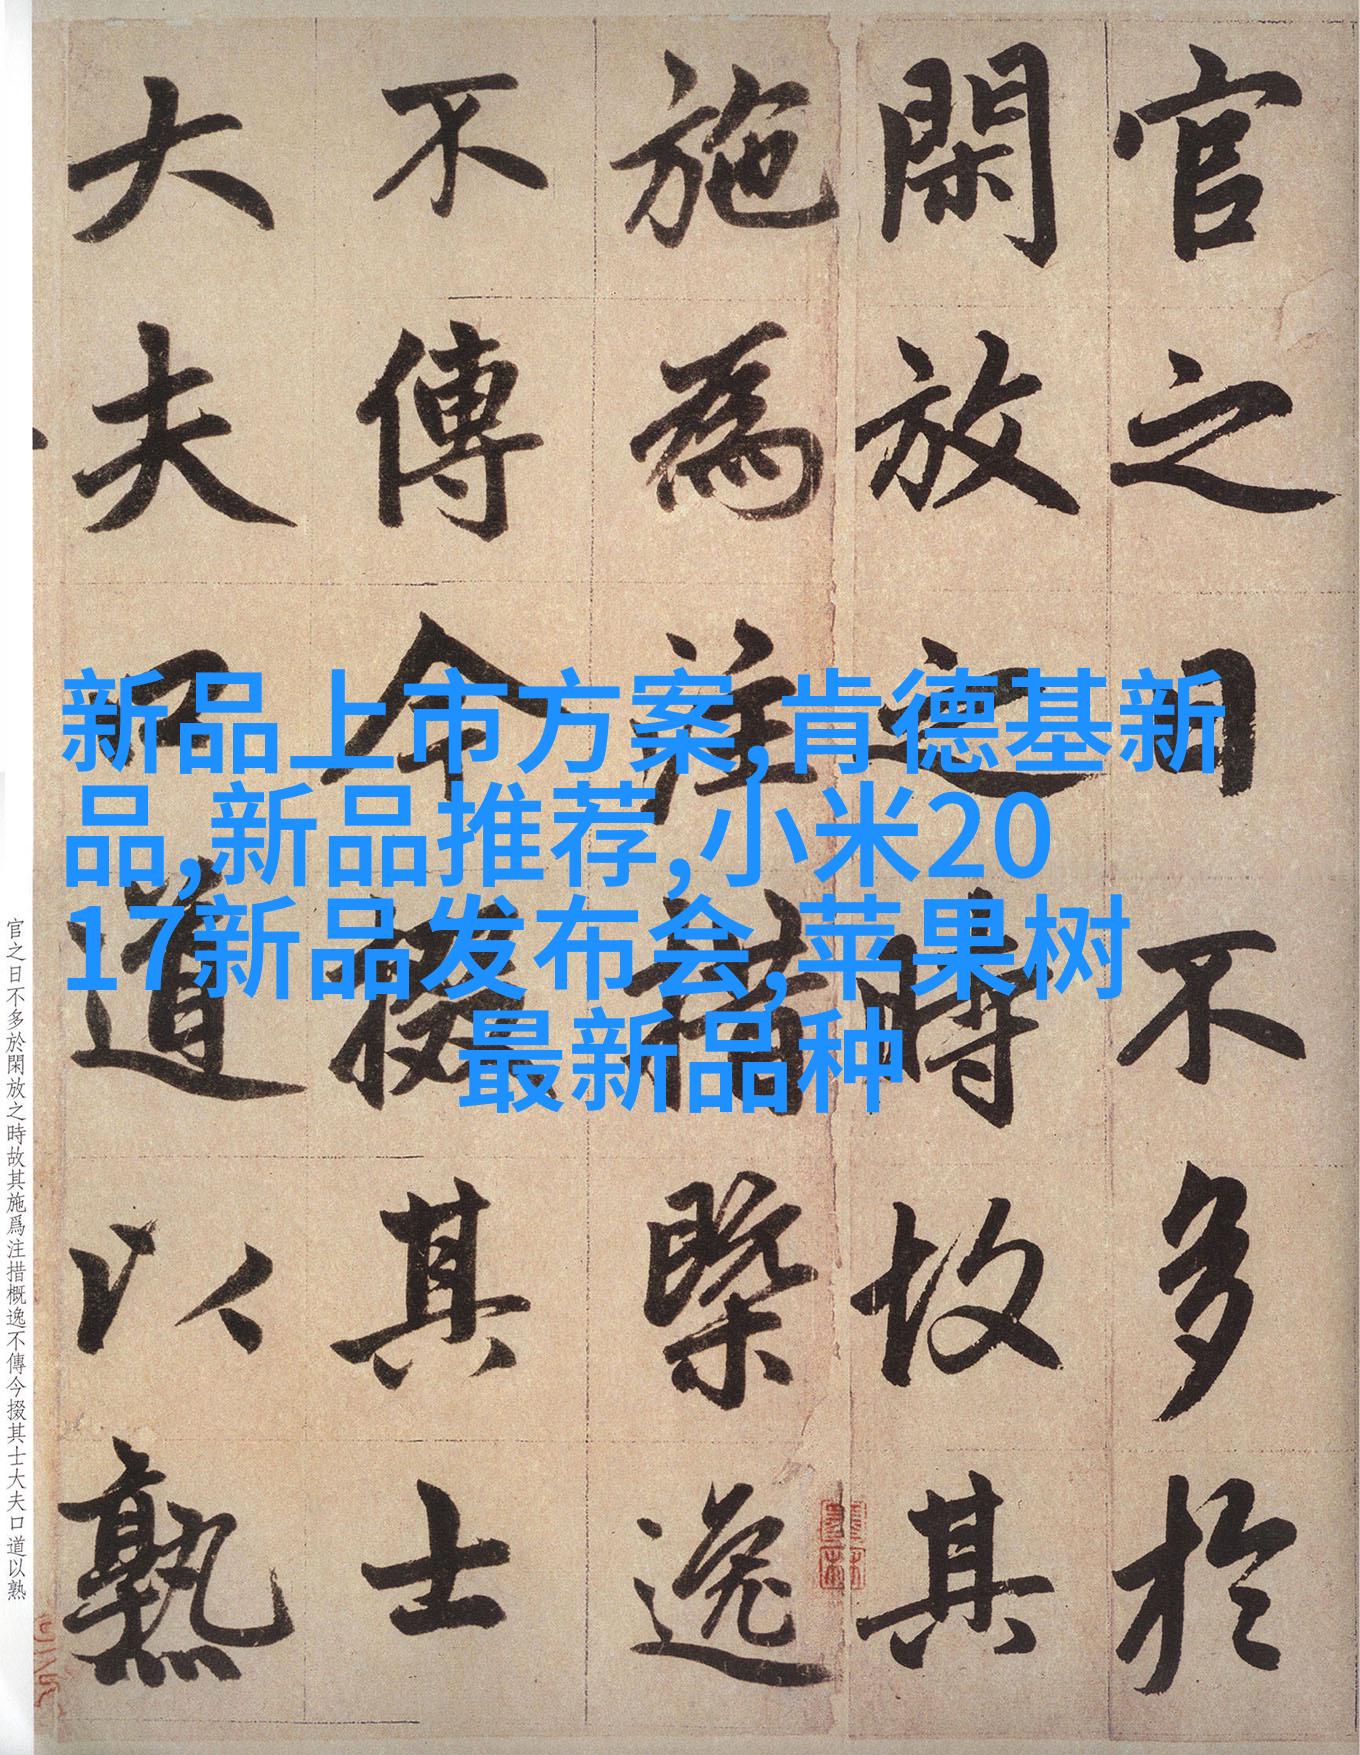 官之日不多於
閑放之時故其
施為注措槩逸
不傳今掇其士
大夫口道以熟
新品上市方案,肯德基新
品,新品推荐,小米20
17新品发布会,苹果树
最新品种
官之日不多於閑放之時故其施爲注措概逸不傳今掇其士大夫口道以熟